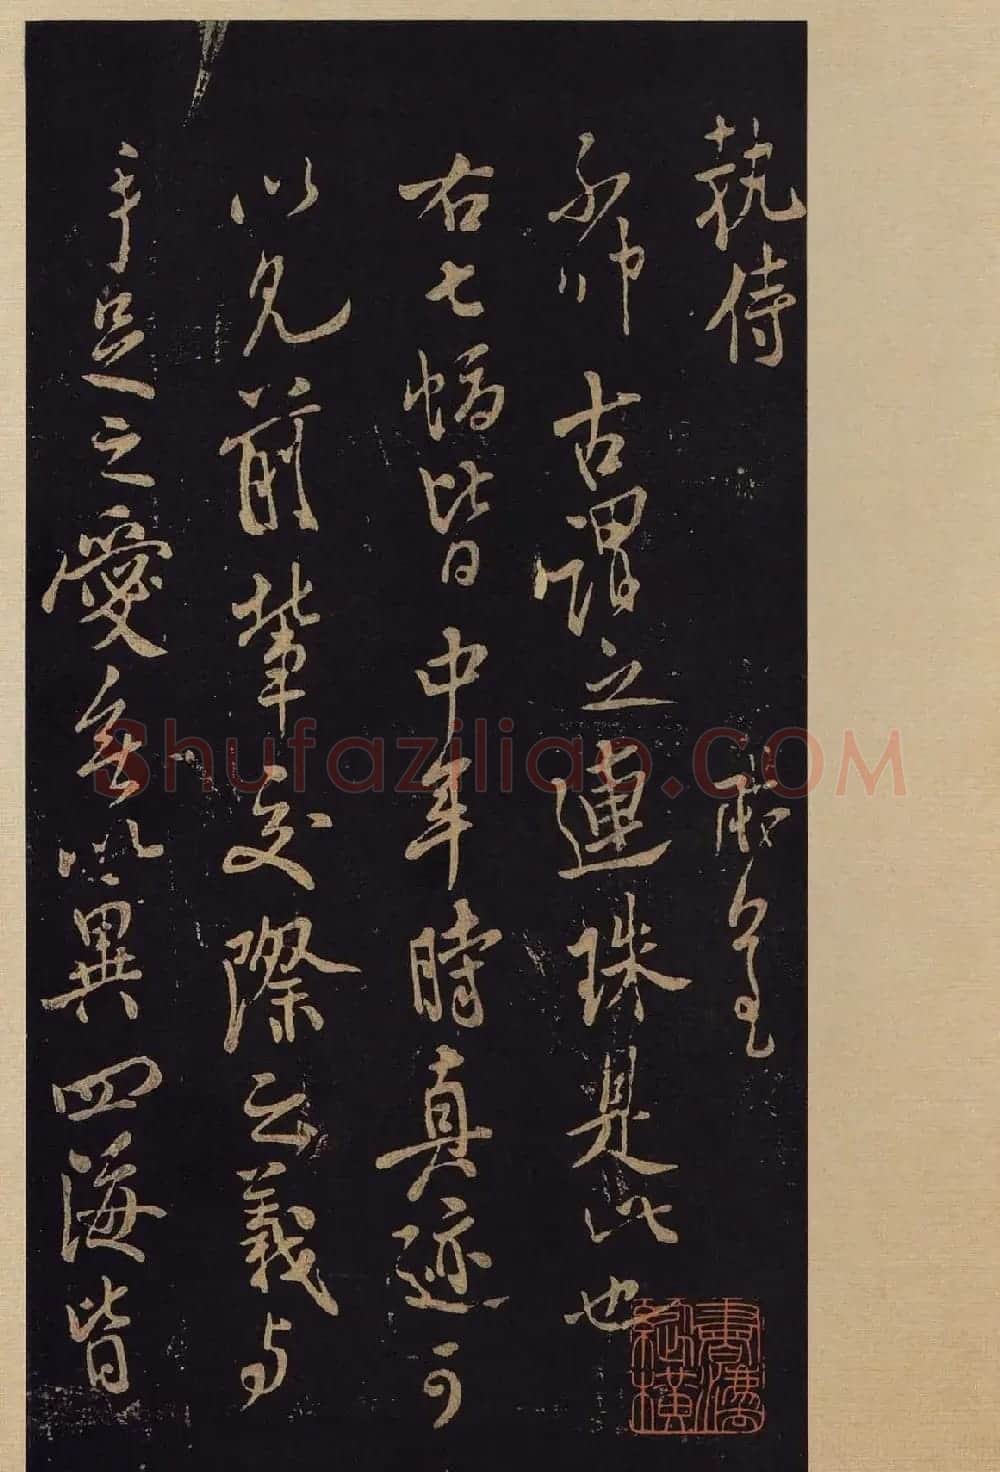 執侍
古謂之連珠是此也
右七幅皆中年時真迹可
以見前輩交際之義与
手足之愛無以異四海皆
Shufaziliao.COM